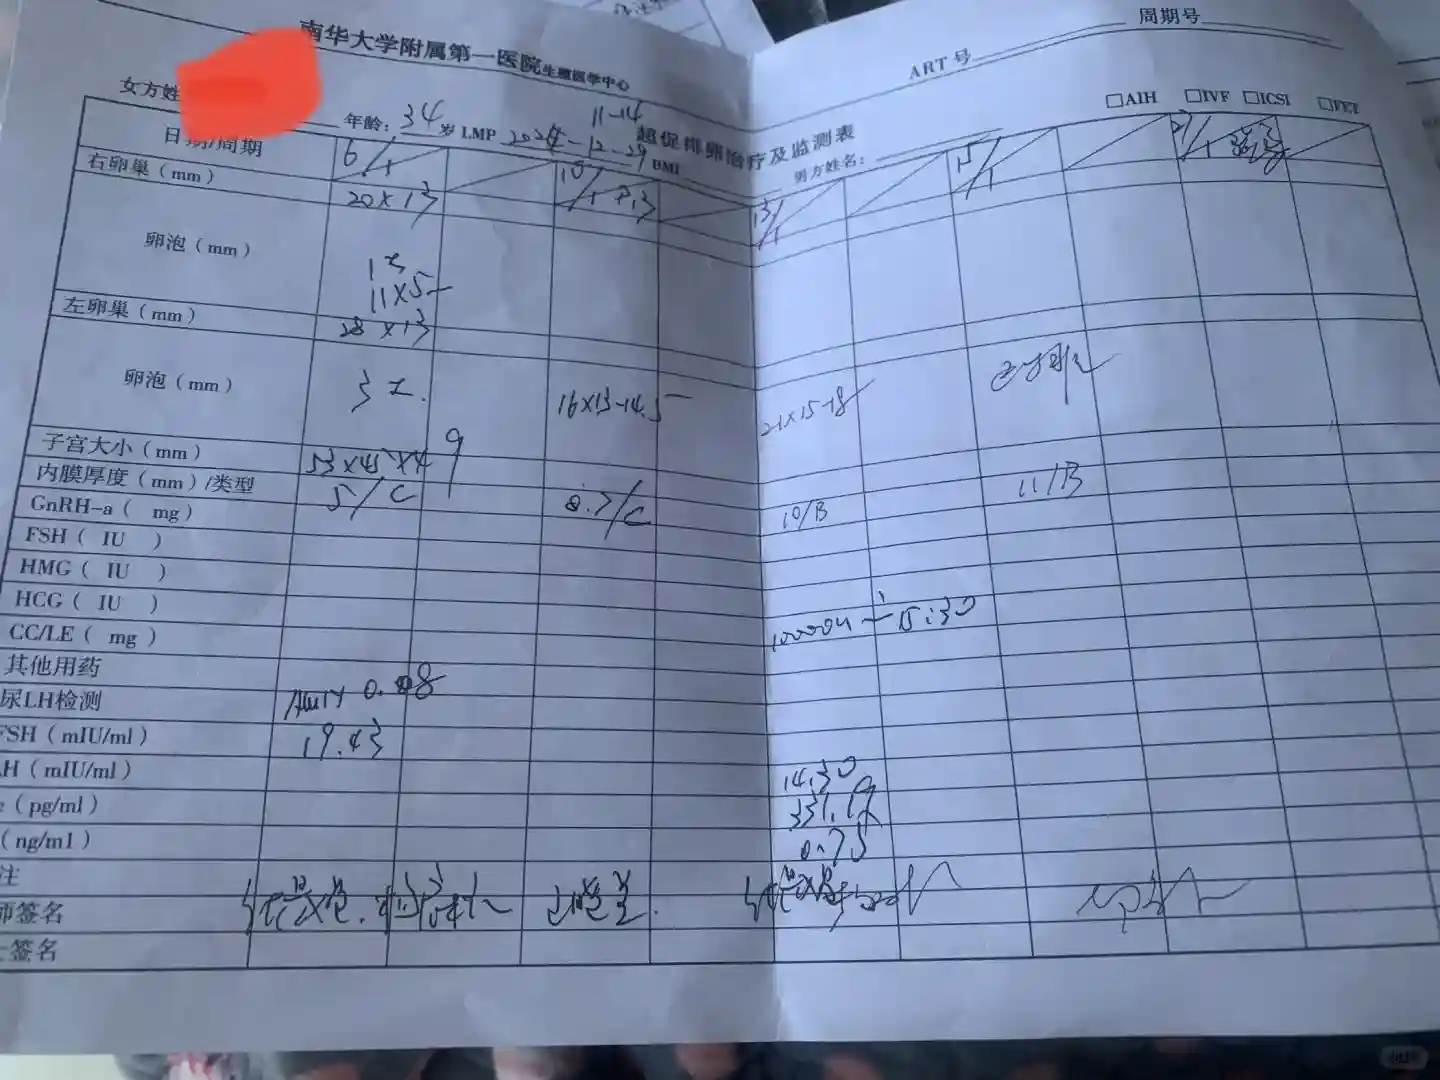 南华大学附属第一医院生殖医学中心
超促排卵治疗及监测表
ART 号 周期号
□AIH □IVF □ICSI □FET
女方姓 年龄：34岁 LMP 2024-12-29 BMI 男方姓名：
11-14
日期/周期 6/1 10/1 13/1 15/1
右卵巢（mm） 20×13
卵泡（mm） 11×5
左卵巢（mm） 28×13
卵泡（mm） 16×13-14.5 21×15-18 已排
子宫大小（mm） 53×45×49
内膜厚度（mm）/类型 5/C 8.7/C 10/B 11/B
GnRH-a（ mg）
FSH（ IU ）
HMG（ IU ）
HCG（ IU ） 10000u 15:30
CC/LE（ mg ）
其他用药
尿LH检测 AMH 0.08
FSH（mIU/ml） 19.43
LH（mIU/ml） 14.30
（pg/ml） 331.19
（ng/ml） 0.75
注
师签名
签名